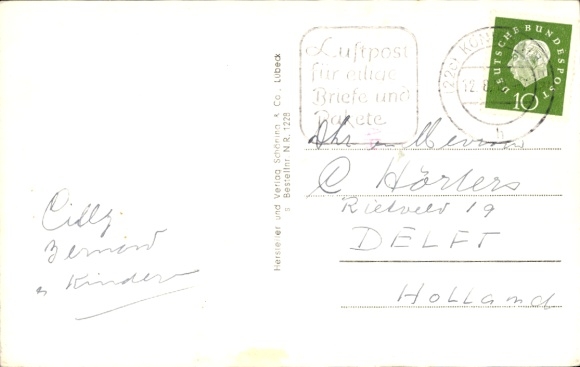 Cilly
Bernard
u Kinder
Hersteller und Verlag Schöning & Co., Lübeck
Bestellnr. N.R. 1228
Luftpost
für eilige
Briefe und
Pakete
(22c) KÖLN
12.8.
h
DEUTSCHE BUNDESPOST
10
C Hörters
Rietveld 19
DELFT
Holland